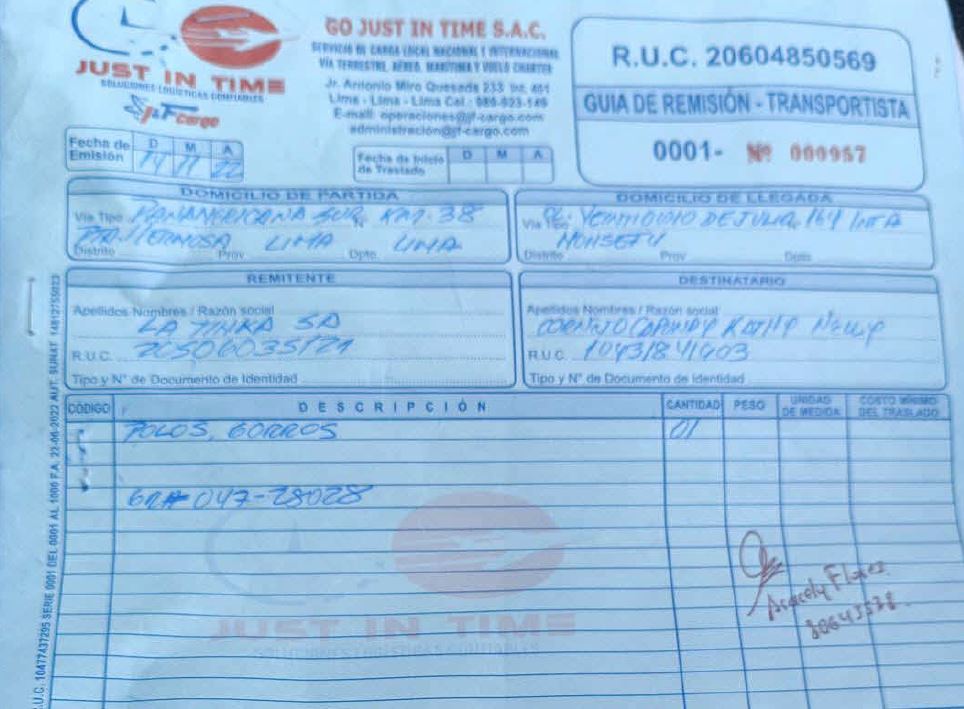 JUST IN TIME
SOLUCIONES LOGISTICAS CONFIABLES
Cargo
GO JUST IN TIME S.A.C.
SERVICIO DE CARGA LOCAL NACIONAL Y INTERNACIONAL
VÍA TERRESTRE, AEREO, MARÍTIMA Y VUELO CHARTER
Jr. Antonio Miro Quesada 233 Int. 401
Lima - Lima - Lima Cel.: 989-923-149
E-mail: operaciones@jf-cargo.com
administración@jf-cargo.com
R.U.C. 20604850569
GUIA DE REMISIÓN - TRANSPORTISTA
0001- Nº 000957
Fecha de Emisión D M A
14 11 22
Fecha de Inicio de Traslado D M A
DOMICILIO DE PARTIDA
Vía Tipo PANAMERICANA SUR. KM. 38
HERMOSA LIMA LIMA
Distrito Prov. Dpto.
DOMICILIO DE LLEGADA
Vía Tipo DE JULIO, 164
MONSEFU
Distrito Prov. Dpto.
REMITENTE
Apellidos Nombres / Razón social
LA TINKA SA
R.U.C. 20506035121
Tipo y Nº de Documento de Identidad
DESTINATARIO
Apellidos Nombres / Razón social
CORNEJO KATHY NELLY
R.U.C. 10431841403
Tipo y Nº de Documento de Identidad
CÓDIGO DESCRIPCIÓN CANTIDAD PESO UNIDAD DE MEDIDA COSTO MÍNIMO DEL TRASLADO
POLOS, GORROS 01
GR# 047-28028
Aracely Flores
80643538
JUST IN TIME
SOLUCIONES LOGISTICAS CONFIABLES
R.U.C. 10477437295 SERIE 0001 DEL 0001 AL 1000 F.A. 22-06-2022 AUT. SUNAT 14812755023